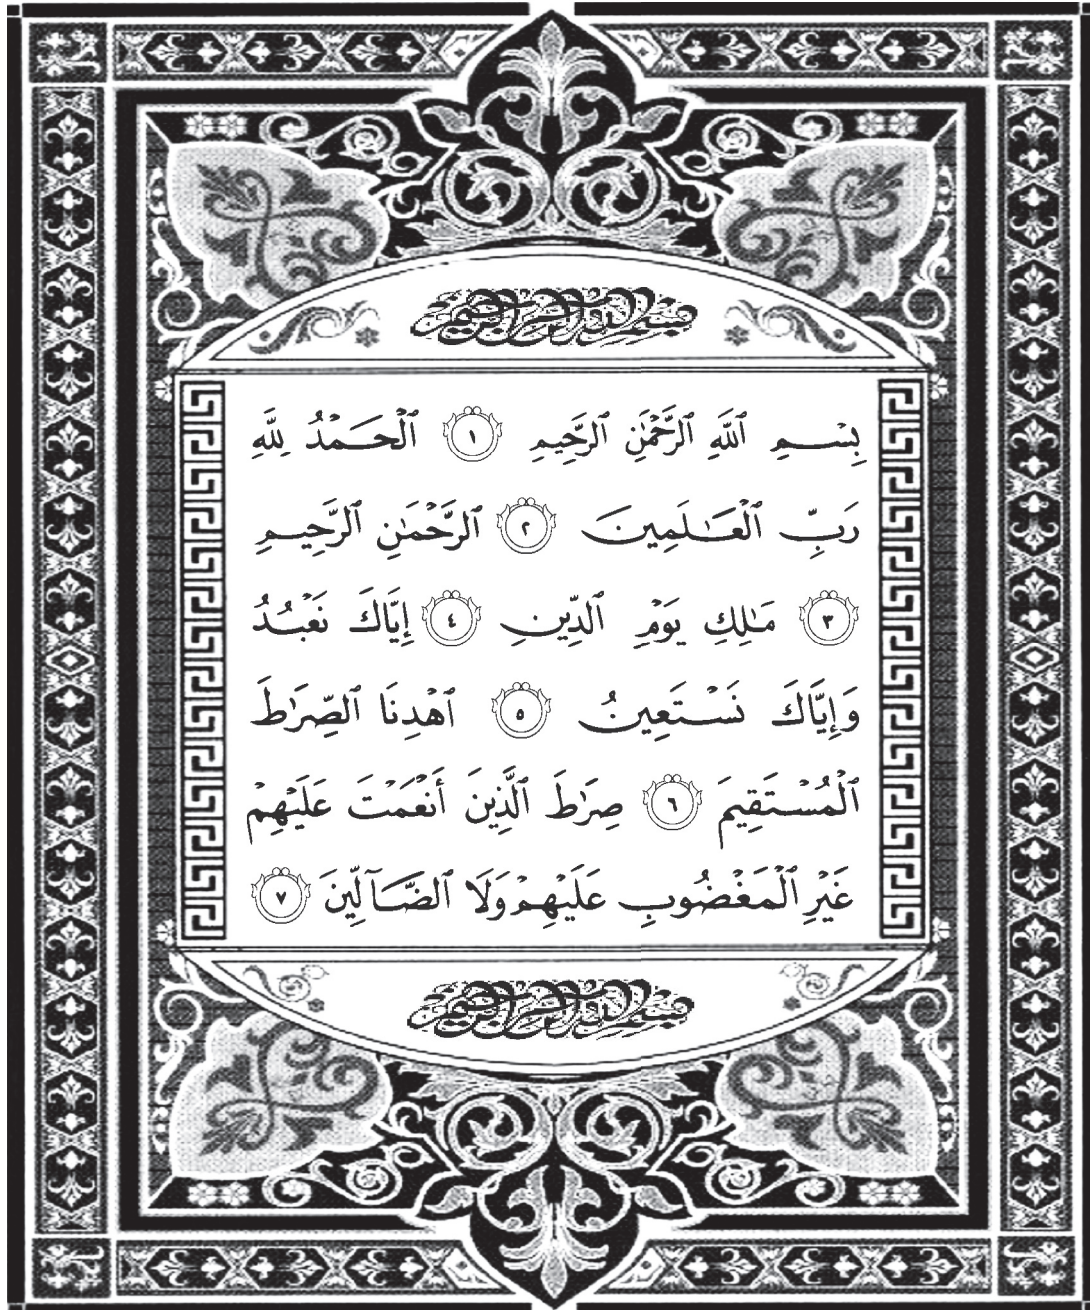 بسم الله الرحمن الرحيم
بِسْمِ ٱللَّهِ ٱلرَّحْمَٰنِ ٱلرَّحِيمِ ١ ٱلْحَمْدُ لِلَّهِ
رَبِّ ٱلْعَٰلَمِينَ ٢ ٱلرَّحْمَٰنِ ٱلرَّحِيمِ
٣ مَٰلِكِ يَوْمِ ٱلدِّينِ ٤ إِيَّاكَ نَعْبُدُ
وَإِيَّاكَ نَسْتَعِينُ ٥ ٱهْدِنَا ٱلصِّرَٰطَ
ٱلْمُسْتَقِيمَ ٦ صِرَٰطَ ٱلَّذِينَ أَنْعَمْتَ عَلَيْهِمْ
غَيْرِ ٱلْمَغْضُوبِ عَلَيْهِمْ وَلَا ٱلضَّآلِّينَ ٧
بسم الله الرحمن الرحيم